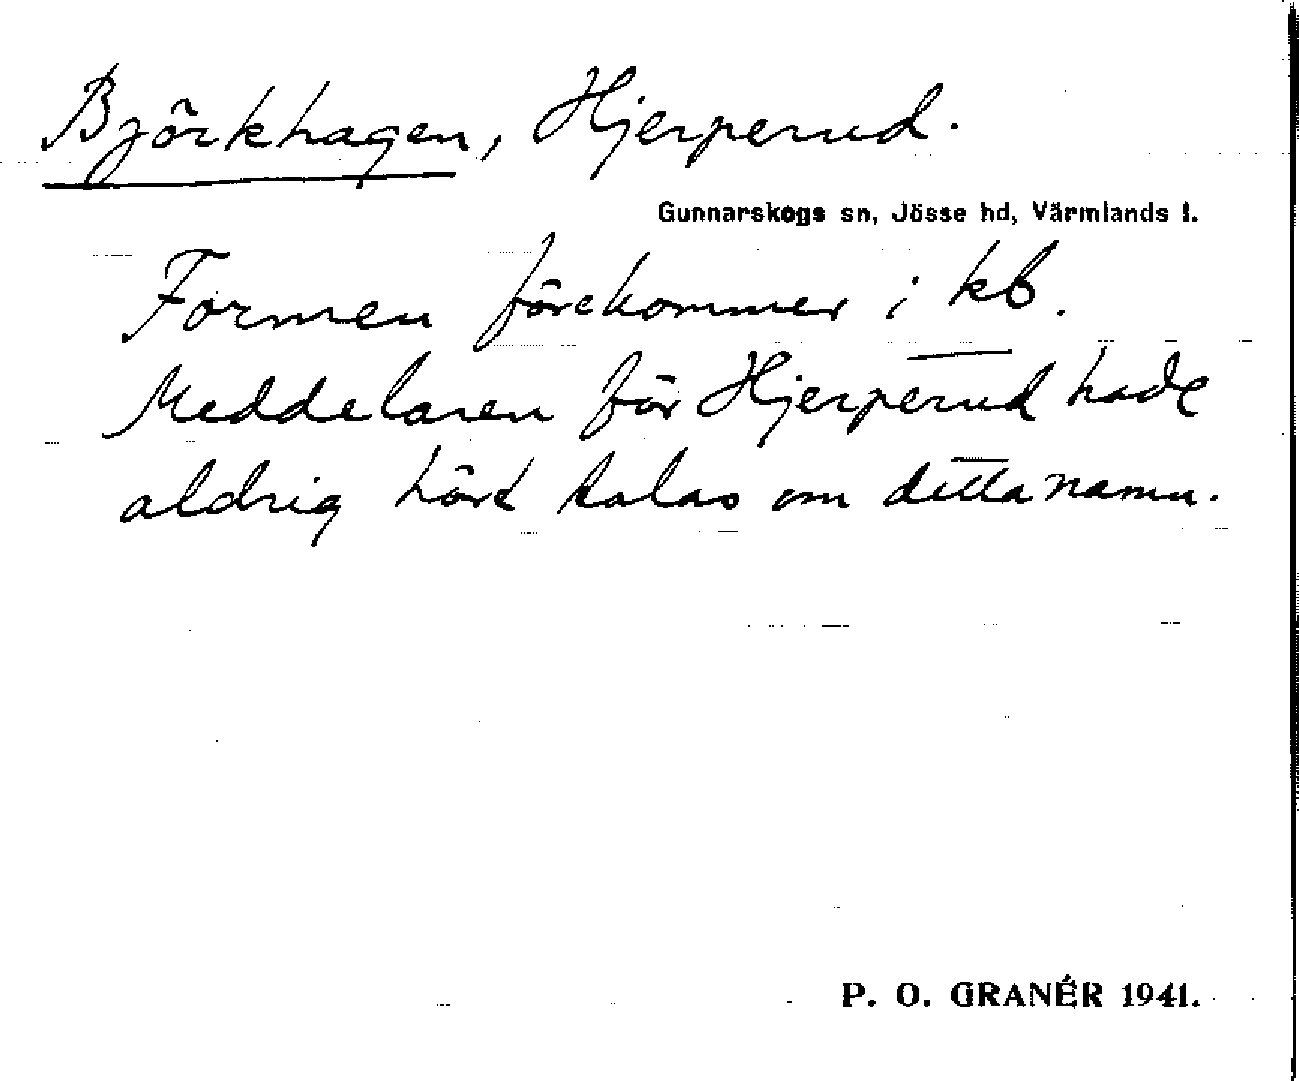 Björkhagen, Hjerperud.
Gunnarskogs sn, Jösse hd, Värmlands l.
Formen förekommer i kb.
Meddelaren för Hjerperud hade
aldrig hört talas om detta namn.
P. O. GRANÉR 1941.